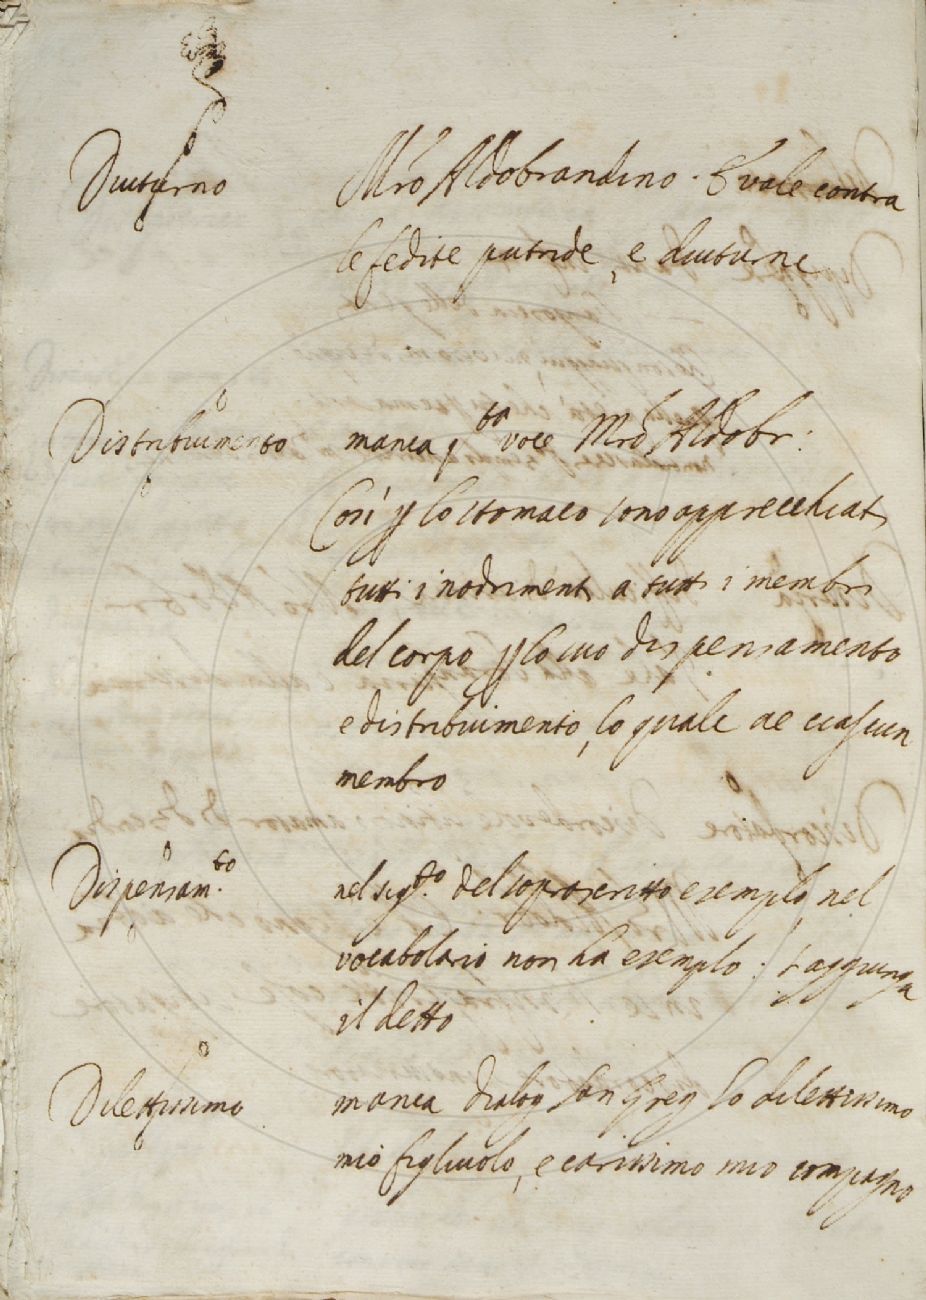 Diuturno Mro Aldobrandino. E vale contra
le fedite putride, e diuturne
Distribuimento manca q.ta voce Mro Aldobr:
Così p lo stomaco sono apparecchiati
tutti i nodrimenti a tutti i membri
del corpo p lo suo dispensamento
e distribuimento, lo quale ae ciascun
membro
Dispensam.to nel sig.to del soprascritto esempio, nel
vocabolario non ha esempio: s'aggiunga
il detto
Dilettissimo manca dialog San Greg Lo dilettissimo
mio figliuolo, e carissimo mio compagno